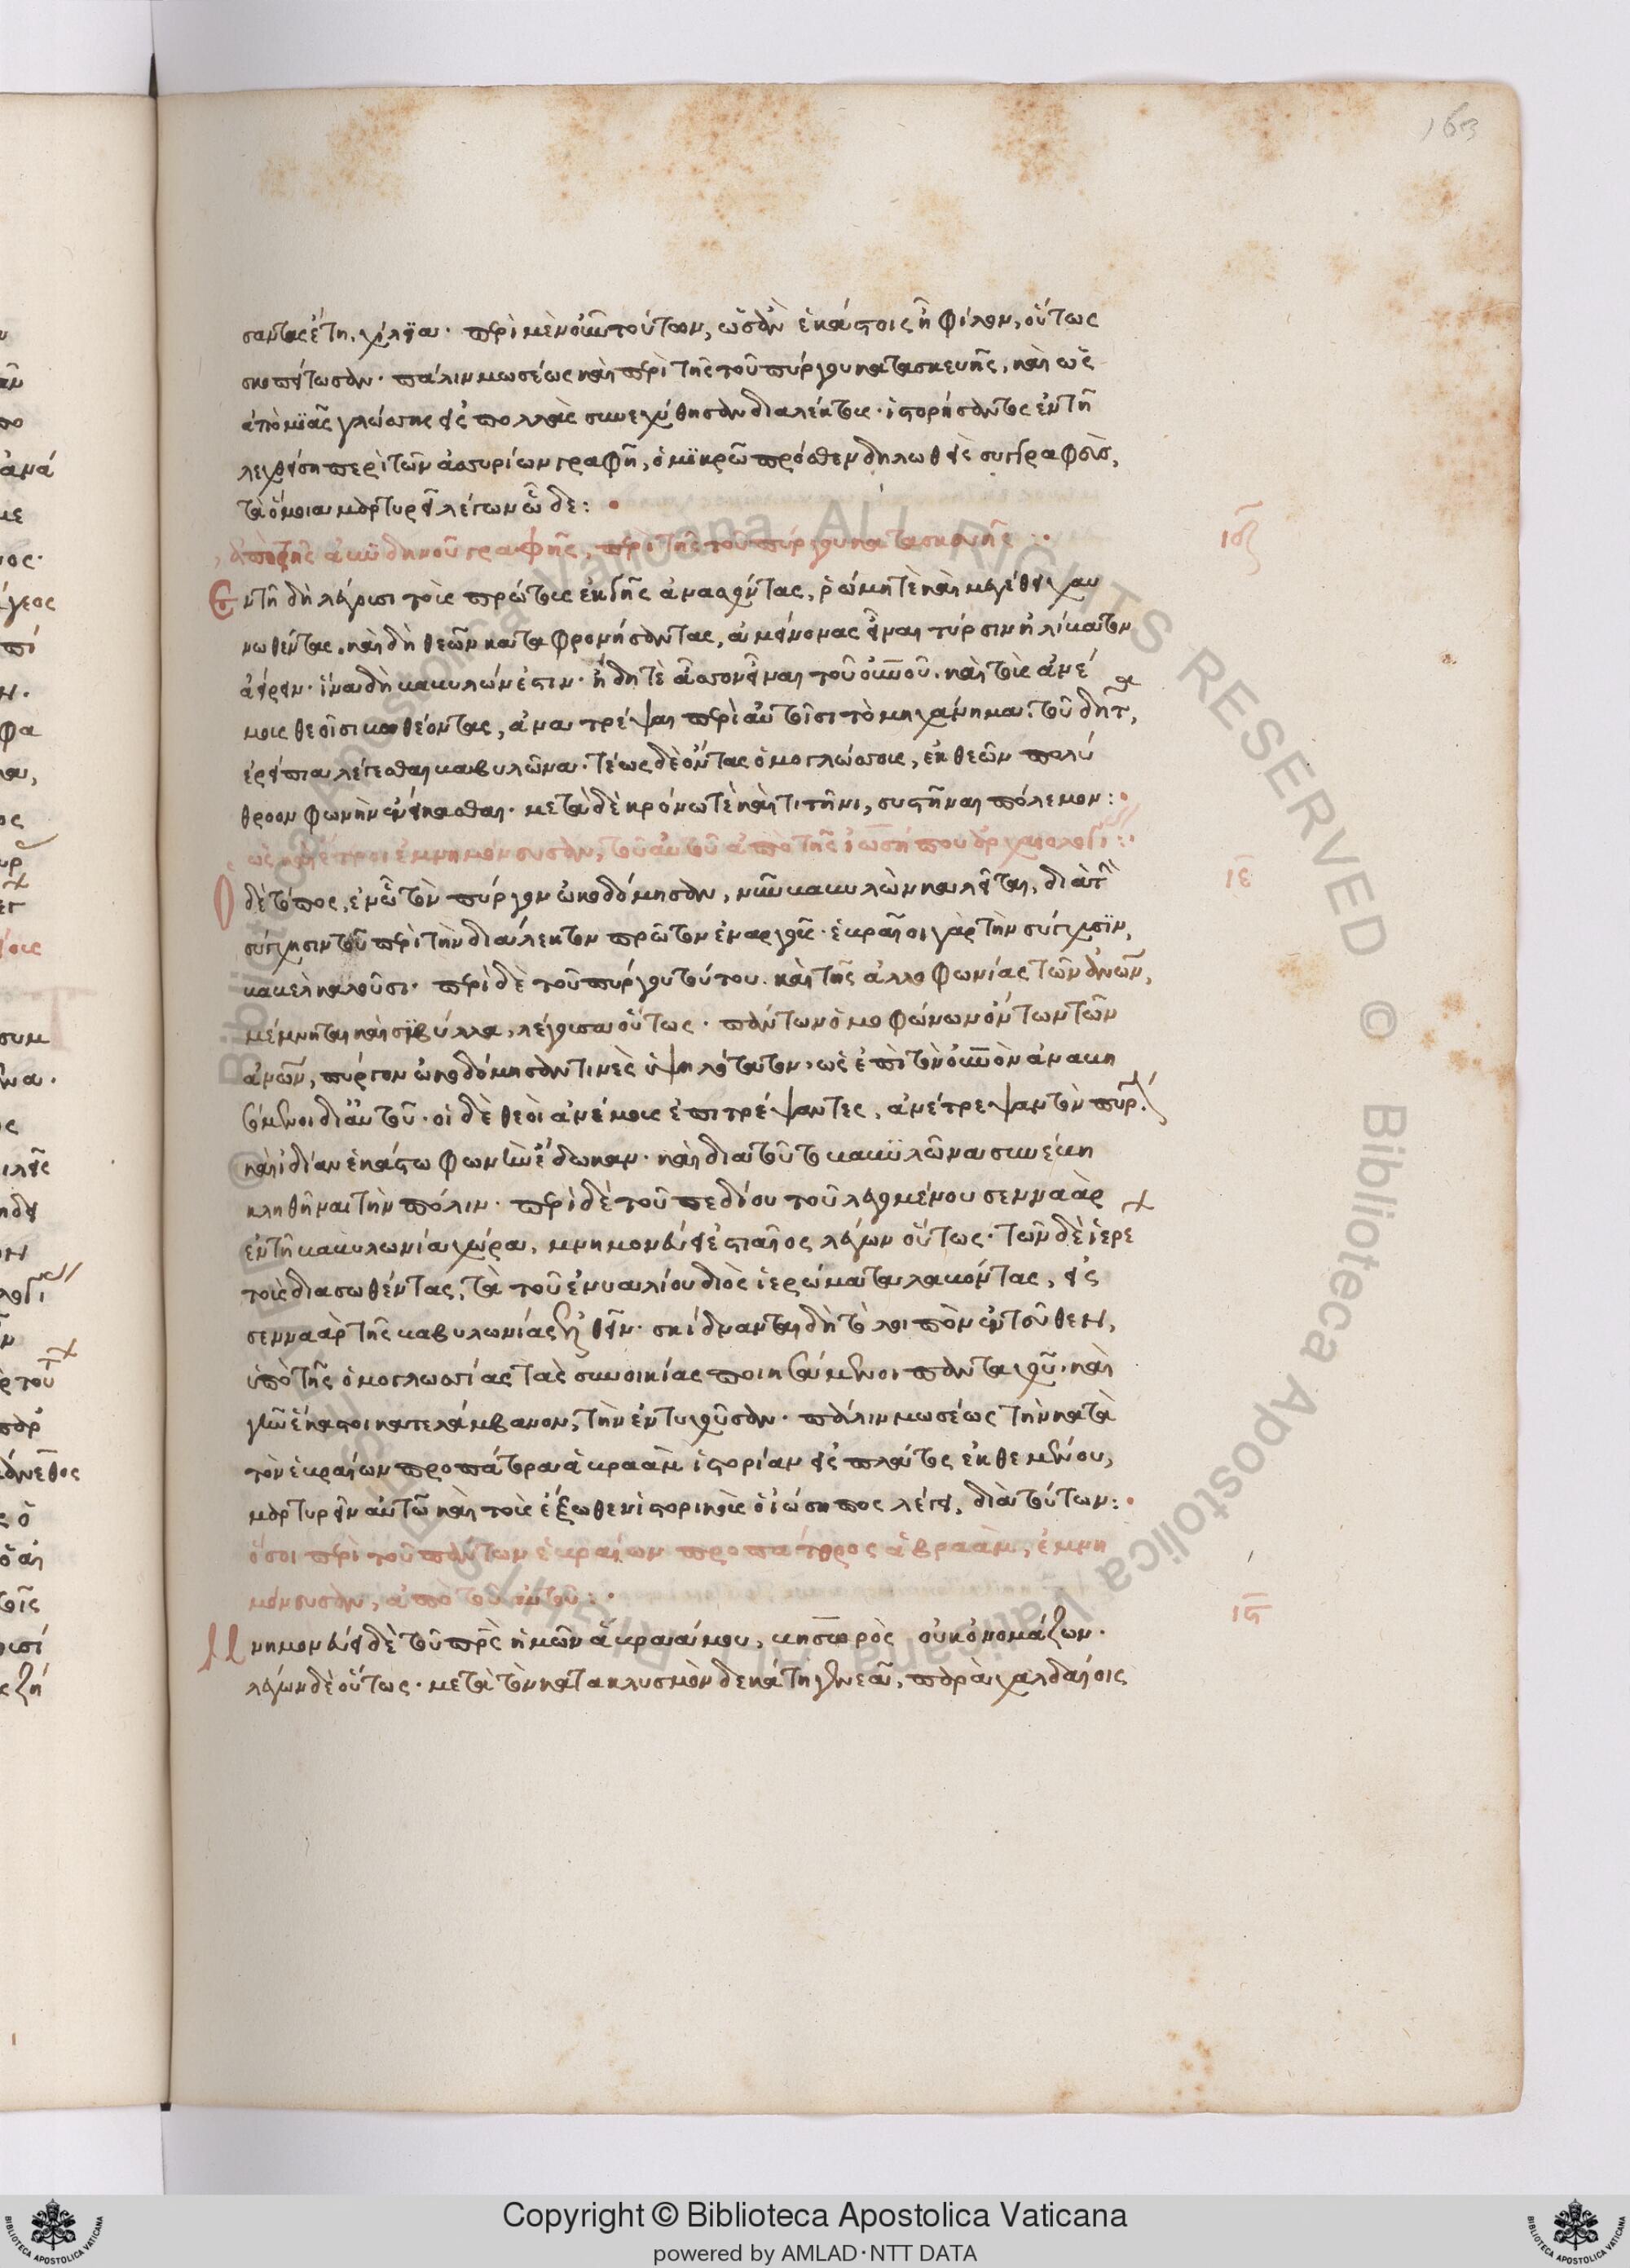 163
σαντας ἔτη χίλια· περὶ μὲν οὖν τούτων, ὡς ἂν ἑκάστοις ᾖ φίλον, οὕτως
σκοπείτωσαν· πάλιν μωσέως καὶ περὶ τῆς τοῦ πύργου κατασκευῆς, καὶ ὡς
ἀπὸ μιᾶς γλώσσης εἰς πολλὰς συνεχύθησαν διαλέκτους· ἱστορήσαντος ἐν τῆ
λεχθείση περὶ τῶν ἀσσυρίων γραφῆ, ὁ μικρῶ πρόσθεν δηλωθεὶς συγγραφεὺς,
τὰ ὅμοια μαρτυρεῖ λέγων ὧδε:
ἀπὸ τῆς ἀβυδηνοῦ γραφῆς, περὶ τῆς τοῦ πύργου κατασκευῆς
ιδ
Ἐντὶ δ' οἳ λέγουσι τοὺς πρώτους ἐκ γῆς ἀνασχόντας, ῥώμη τὲ καὶ μεγέθει χαυ
νωθέντας, καὶ δὴ θεῶν καταφρονήσαντας, ἀμείνονας εἶναι τύρσιν ἠλίβατον
ἀείρειν· ἵνα δὴ βαβυλών ἐστιν· ἤδη τὲ ἆσσον εἶναι τοῦ οὐνοῦ· καὶ τοὺς ἀνέ
μους θεοῖσι βωθέοντας, ἀνατρέψαι περὶ αὐτοῖσι τὸ μηχάνημα· τοῦ δῆτα
ἐρείπια λέγεσθαι βαβυλῶνα· τέως δὲ ὄντας ὁμογλώσσους, ἐκ θεῶν πολύ
θροον φωνὴν ἐνείκασθαι· μετὰ δὲ κρόνω τὲ καὶ τιτῆνι, συστῆναι πόλεμον:
ὡς καὶ ἕτεροι ἐμνημόνευσαν, τοῦ αὐτοῦ ἀπὸ τῆς ἰωσήπου ἀρχαιολογί:
ιε
Ὁ δὲ τόπος, ἐν ὧ τὸν πύργον ὠκοδόμησαν, νῦν βαβυλὼν καλεῖται, διὰ τὴν
σύγχυσιν τοῦ περὶ τὴν διάλεκτον πρῶτον ἐναργοῦς· ἑβραῖοι γὰρ τὴν σύγχυσιν,
βαβὲλ καλοῦσι· περὶ δὲ τοῦ πύργου τούτου καὶ τῆς ἀλλοφωνίας τῶν ἀνων,
μέμνηται καὶ σίβυλλα, λέγουσα οὕτως· πάντων ὁμοφώνων ὄντων τῶν
ἀνων, πύργον ὠκοδόμησαν τινὲς ὑψηλότατον, ὡς ἐπὶ τὸν οὐνὸν ἀναβη
σόμενοι δι' αὐτοῦ· οἱ δὲ θεοὶ ἀνέμους ἐπιτρέψαντες, ἀνέτρεψαν τὸν πύργ
καὶ ἰδίαν ἑκάστω φωνὴν ἔδωκαν· καὶ διὰ τοῦτο βαβυλῶνα συνέβη
κληθῆναι τὴν πόλιν· περὶ δὲ τοῦ πεδίου τοῦ λεγομένου σενναὰρ
ἐν τῆ βαβυλωνία χώρα, μνημονεύει ἑστιαῖος λέγων οὕτως· τῶν δὲ ἱερέ
τοὺς διασωθέντας, τὰ τοῦ ἐνυαλίου διὸς ἱερώματα λαβόντας, εἰς
σενναὰρ τῆς βαβυλωνίας ἐλθεῖν· σκίδνανται δὴ τὸ λοιπὸν ἐντεῦθεν,
ὑπὸ τῆς ὁμογλωσσίας τὰς συνοικίας ποιησάμενοι πανταχοῦ· καὶ
γῆν ἕκαστοι κατελάμβανον, τὴν ἐντυχοῦσαν· πάλιν μωσέως τὴν κατὰ
τὸν ἑβραίων προπάτορα ἁβραὰμ ἱστορίαν εἰς πλάτος ἐκθεμένου,
μαρτυρεῖν αὐτῶ καὶ τοὺς ἔξωθεν ἱστορικοὺς ὁ ἰώσηπος λέγει, διὰ τούτων:
ὅσοι περὶ τοῦ πάντων ἑβραίων προπάτορος ἁβραὰμ, ἐμνη
μόνευσαν, ἀπὸ τοῦ αὐτοῦ:
ις
Μνημονεύει δὲ τοῦ πρς ἡμῶν ἁβραάμου, βησωρὸς οὐκ ὀνομάζων·
λέγων δὲ οὕτως· μετὰ τὸν κατακλυσμὸν δεκάτη γενεᾶ, παρὰ χαλδαίοις
Copyright © Biblioteca Apostolica Vaticana
powered by AMLAD·NTT DATA